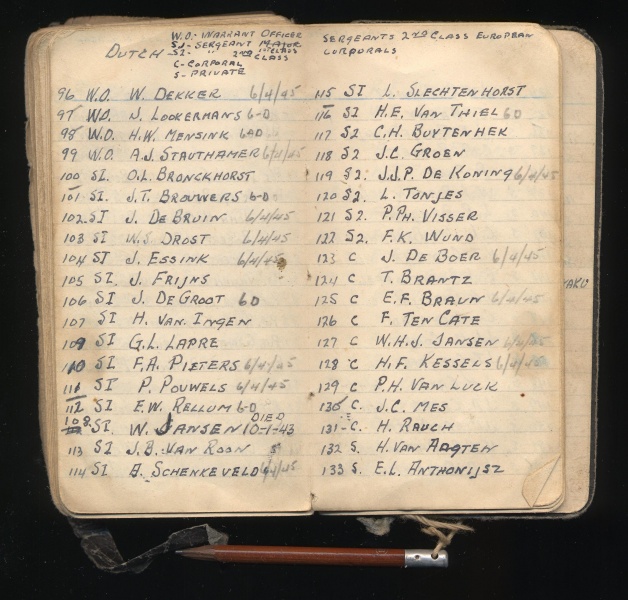 DUTCH
W.O: WARRANT OFFICER
S1 - SERGEANT MAJOR
S2 - " 2ND CLASS
C - CORPORAL
S - PRIVATE
96 W.O. W. DEKKER 6/4/45
97 W.O. J. LOOKERMANS 6-D
98 W.O. H.W. MENSINK 6D
99 W.O. A.J. STAUTHAMER 6/4/45
100 SI. O.L. BRONCKHORST
101 SI. J.T. BROUWERS 6-D
102 SI J. DE BRUIN 6/4/45
103 SI W.S. DROST 6/4/45
104 SI J. ESSINK 6/4/45
105 SI J. FRIJNS
106 SI J. DE GROOT 6D
107 SI H. VAN. INGEN
109 SI G.L. LAPRE
110 SI F.A. PIETERS 6/4/45
111 SI P. POUWELS 6/4/45
112 SI E.W. RELLUM 6-D
108 SI. W. JANSEN DIED 10-1-43
113 SI J.B. VAN ROON
114 SI B. SCHENKEVELD 6/4/45
SERGEANTS 2ND CLASS EUROPEAN
CORPORALS
115 SI L. SLECHTENHORST
116 SI H.E. VAN THIEL 6D
117 S2 C.H. BUYTENHEK
118 S2 J.C. GROEN
119 S2. J.J.P. DE KONING 6/4/45
120 S2. L. TONJES
121 S2. P.PH. VISSER
122 S2. F.K. WUND
123 C J. DE BOER 6/4/45
124 C T. BRANTZ
125 C E.F. BRAUN 6/4/45
126 C F. TEN CATE
127 C W.H.J. JANSEN 6/4/45
128 C H.F. KESSELS 6/4/45
129 C P.H. VAN LUCK
130 C. J.C. MES
131 - C. H. RAUCH
132 S. H. VAN AAGTEN
133 S. E.L. ANTHONIJSZ